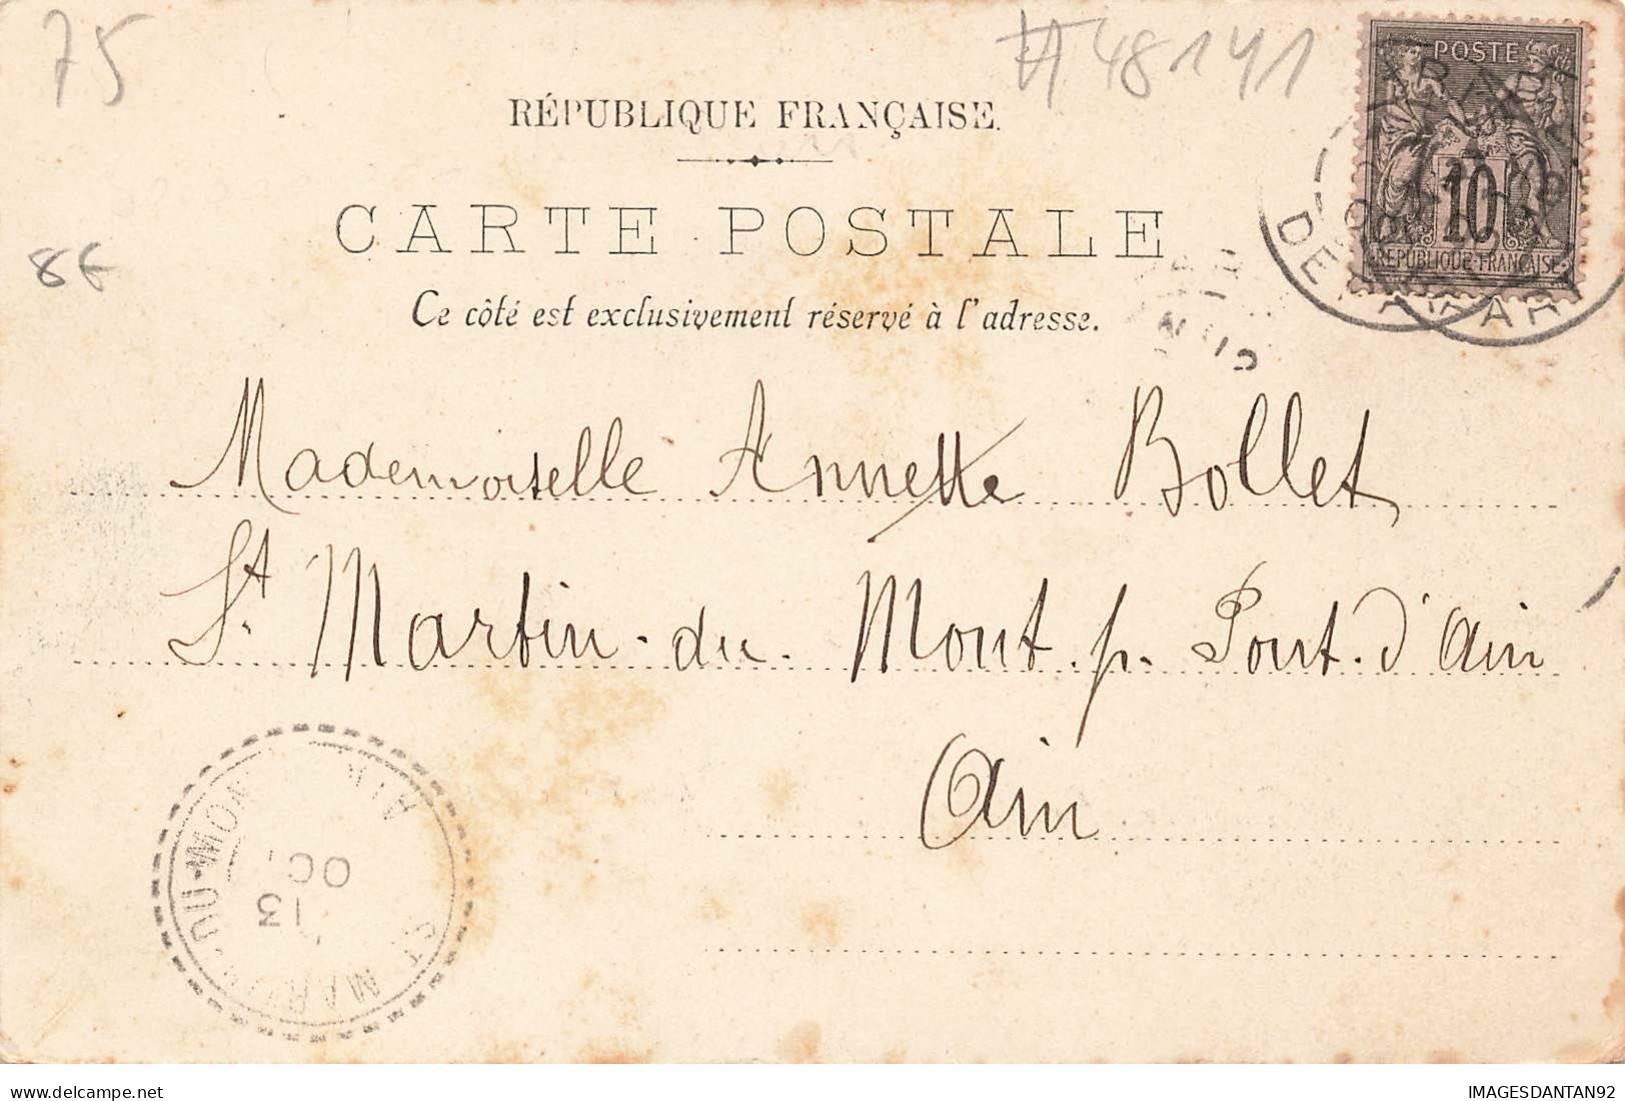 75
#48141
POSTE
10
REPUBLIQUE FRANÇAISE
RÉPUBLIQUE FRANÇAISE.
CARTE POSTALE
8€
Ce côté est exclusivement réservé à l'adresse.
DEPART
Mademoiselle Annette Bollet
St. Martin-du-Mont. p. Pont-d'Ain
Ain
AIN
13
OC
DU-MON
Delcampe.net
IMAGESDANTAN92